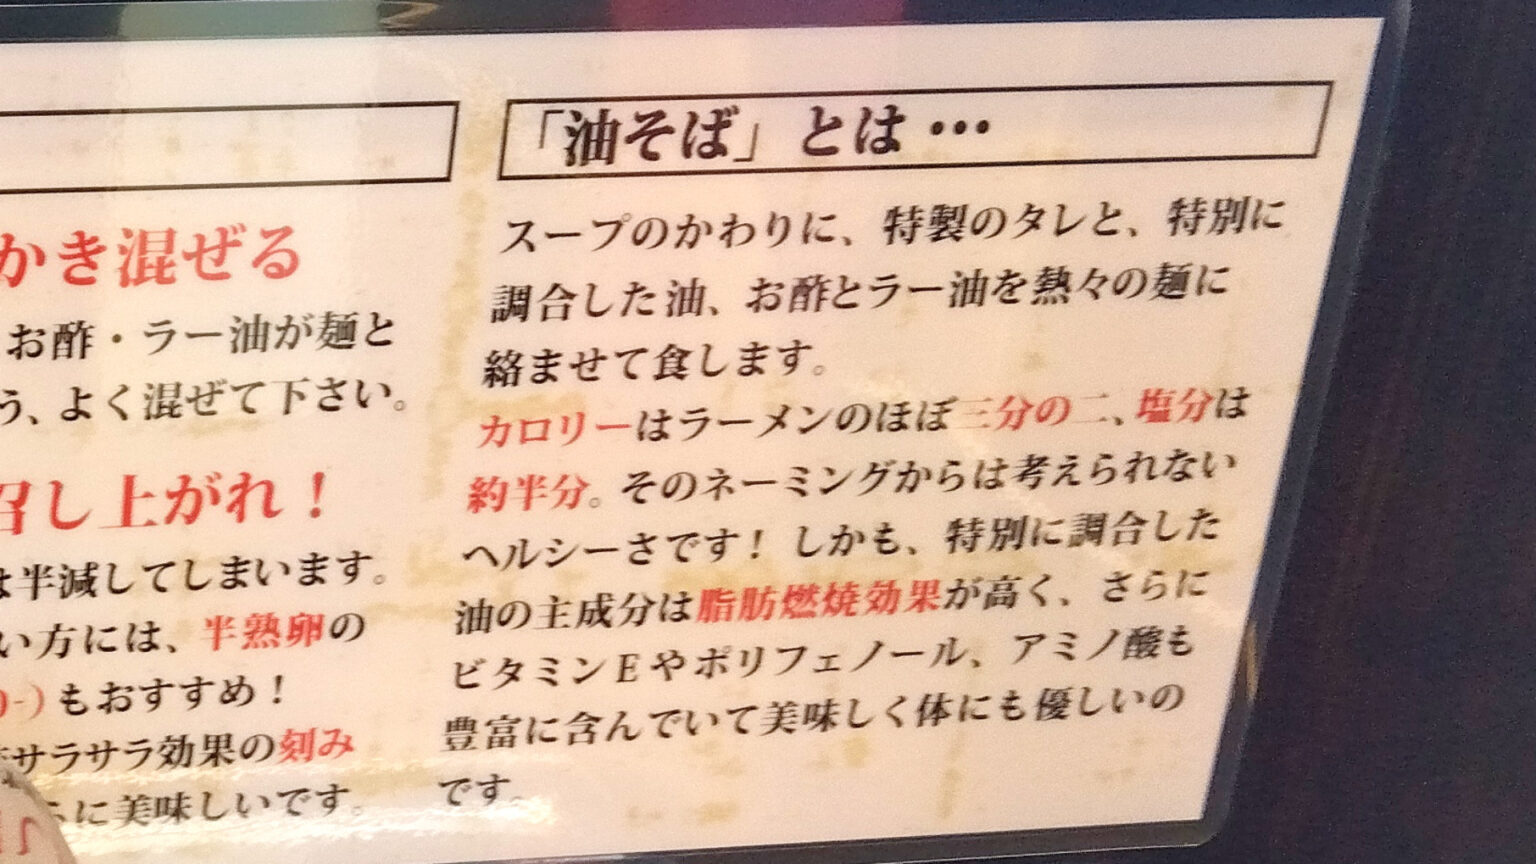 かき混ぜる
お酢・ラー油が麺と
う、よく混ぜて下さい。
召し上がれ！
は半減してしまいます。
い方には、半熟卵の
もおすすめ！
サラサラ効果の刻み
に美味しいです。
「油そば」とは…
スープのかわりに、特製のタレと、特別に
調合した油、お酢とラー油を熱々の麺に
絡ませて食します。
カロリーはラーメンのほぼ三分の二、塩分は
約半分。そのネーミングからは考えられない
ヘルシーさです！しかも、特別に調合した
油の主成分は脂肪燃焼効果が高く、さらに
ビタミンEやポリフェノール、アミノ酸も
豊富に含んでいて美味しく体にも優しいの
です。